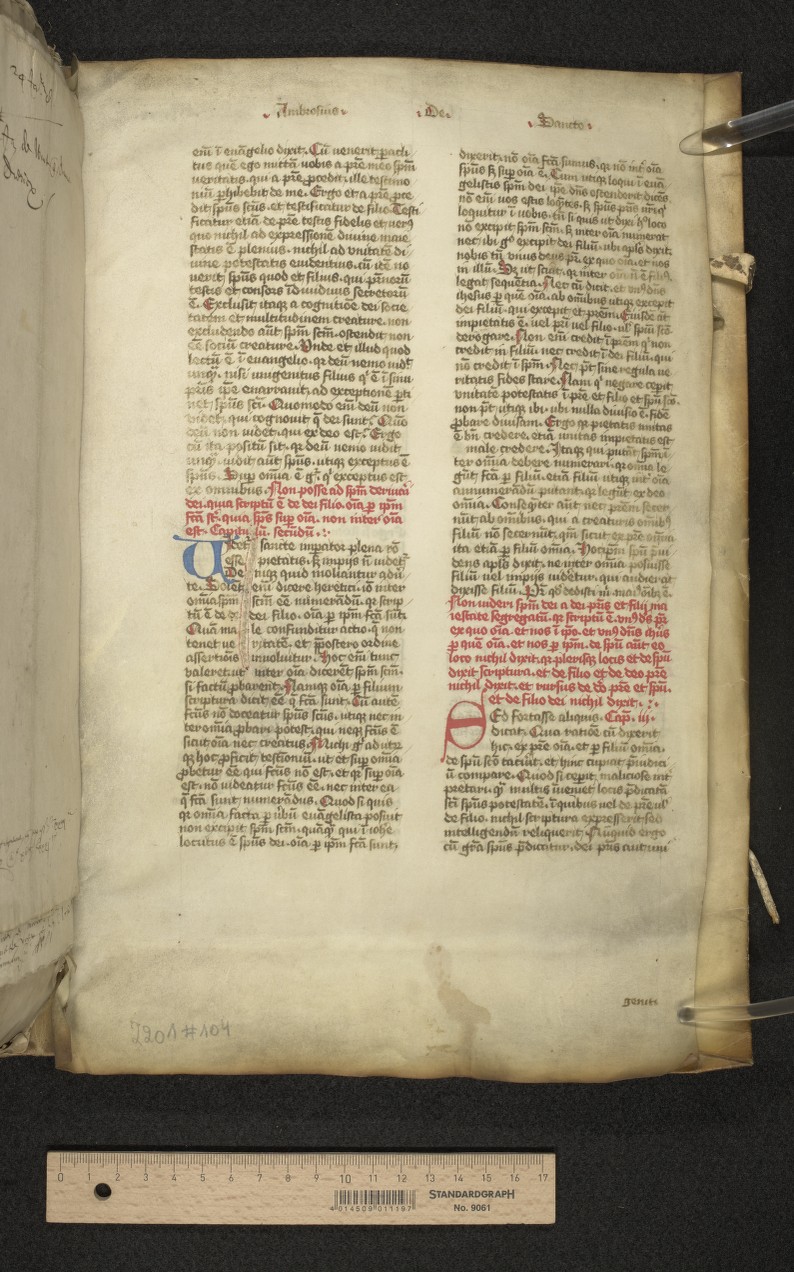 Ambrosius De Sancto
em̄ ī euāgelio dixit. Cū uenerit paracli
tus quē ego mittā uobis a pr̄e meo sp̄m
ueritatis. qui a pr̄e procedit. ille testimo
niū perhibebit de me. Ergo et a pr̄e proce
dit sp̄us sc̄us. et testificatur de filio. Testi
ficatur etiā de pr̄e testis fidelis et uerus
quo nichil ad expressionē diuine maie
statis ē plenius. nichil ad unitatē di
uine potestatis euidentius. cū ita no
uerit sp̄us quod et filius. qui paternorū
testis et consors īdiuiduus secretorū
ē. Exclusit itaq a cognitiōe dei socie
tatem et multitudinem creature. non
excludendo aūt sp̄m sc̄m. ostendit non
ēē sociū creature. Unde et illud quod
lectū ē ī euangelio. qr deū nemo uidit
unq. nisi unigenitus filius q ē ī sinu
pr̄is ip̄e enarrauit. ad exceptionē perti
net sp̄us sc̄i. Quomodo em̄ deū non
uidet. qui cognouit q dei sunt. Quō
deū non uidet. qui ex deo est. Ergo
cū ita positū sit. qr deū nemo uidit
unq. uidit aūt sp̄us. utiq exceptus ē
sp̄us. Sup omīa ē g. q exceptus est
ex omnibus. Non posse ad sp̄m deriuari
dei. quia scriptū ē de dei filio. oīa p ip̄m
fc̄a st. quia sp̄s sup oīa. non inter oīa
est. Capitulū secūdū.
sancte imperator plena rō
esse pietatis. s impijs n uidet
De niq quid moliantur aduer
te. Solet em̄ dicere heretici. iō inter
omīa sp̄m sc̄m ēē numerādū. qr scrip
tū ē de dei filio. oīa p ip̄m fc̄a sūt.
Quā ma le confunditur actio. q non
tenet ue ritatē. et p̄postero ordine
assertiōis inuoluitur. Hoc em̄ tunc
valeret. ut inter oīa dicerēt sp̄m sc̄m.
si factū probarent. Namque oīa p filium
scriptura dicit ēē q fc̄a sunt. Cū autē
fc̄us nō doceatur sp̄us sc̄us. utiq nec in
ter omīa probari potest. qui neq fc̄us ē
sicut oīa nec creatus. Michi g ad utrū
q hoc proficit testīoniū. ut et sup omīa
probetur ēē qui fc̄us nō est. et qr sup oīa
est. nō uideatur fc̄us ēē. nec inter ea
q fc̄a sunt numerādus. Quod si quis
qr omīa facta p uībū euāgelista posuit
non excipit sp̄m sc̄m. quāq qui ī iohē
locutus ē sp̄us dei. oīa p ip̄m fc̄a sunt.
dixerit. nō oīa fc̄a sumus. qr nō int oīa
sp̄us s sup oīa ē. Cum utiq loqui ī euā
gelistis sp̄m dei ip̄e dn̄s ostenderit dicēs.
nō em̄ uos estis loq̄ntes. s sp̄us pr̄is ur̄i q
loquitur ī uobis. tn̄ si quis ut dixi h loco
nō excipit sp̄m sc̄m. s inter oīa numerat
nec ibi g excipit dei filiū. ubi apl̄s dixit.
nobis tn̄ vnus deus pr̄. ex quo oīa. et nos
in illū. Sz ut sciat. qr inter oīa n ē filius
legat sequētia. Nec cū dicit. et vn dn̄s
ihesus p quē oīa. ab omībus utiq excepit
dei filiū. qui excepit et pr̄em. Eiusdē aūt
impietatis ē. uel pr̄i uel filio. ul sp̄ui sc̄o
derogare. Non em̄ credit ī pr̄em q non
credit in filiū. nec credit ī dei filiū. qui
nō credit ī sp̄m. Nec pt sine regula ue
ritatis fides stare. Nam q negare cepit
unitatē potestatis ī pr̄e et filio et sp̄u sc̄o.
non pt utiq ibi. ubi nulla diuisio ē. fidē
probare diuisam. Ergo qr pietatis unitas
ē bn̄ credere. etiā unitas impietatis est
male credere. Itaq qui putāt sp̄m ī
ter omīa debere numerari. qr omīa le
gūt fc̄a p filiū. etiā filiū utiq int oīa
annumerādū putant. qr legūt ex deo
omīa. Conseqter aūt nec pr̄em secer
nūt ab omībus. qui a creaturis omībz
filiū nō secernūt. qm̄ sicut ex pr̄e omīa
ita etiā p filiū omīa. Hoc ip̄m sp̄u p̄ui
dens apl̄s dixit. ne inter omīa posuisse
filiū uel impijs uidetur. qui audierat
dixisse filiū.
Non uideri sp̄m dei a dei pr̄is et filij ma
iestate segregatū. qr scriptū ē. vn ds pr̄
ex quo oīa. et nos ī ip̄o. et vn dn̄s ihūs
p quē oīa. et nos p ip̄m. de sp̄u aūt eo
loco nichil dixit. qr plerisq locis et de sp̄u
dixit scriptura. et de filio et de deo pr̄e
nichil dixit. et rursus de deo pr̄e et sp̄u.
et de filio dei nichil dixit.
Sed fortasse aliquis. Cap. iij.
dicat. Qua ratiōe cū dixerit
hic. ex pr̄e oīa. et p filiū omīa.
de sp̄u sc̄o tacuit. et hinc cupiat p̄iudici
ū compare. Quod si ceperit maliciose int
pretari. q multis īueniet locis p̄dicatā
sc̄i sp̄us potestatē. ī quibus uel de pr̄e ul
de filio. nichil scriptura expresserit. sed
intelligendū reliquerit. Nunquid ergo
cū grā sp̄us p̄dicatur. dei pr̄is aut uni
genit.
7201#104
0 1 2 3 4 5 6 7 8 9 10 11 12 13 14 15 16 17
4 014509 011197
STANDARDGRAPH
No. 9061